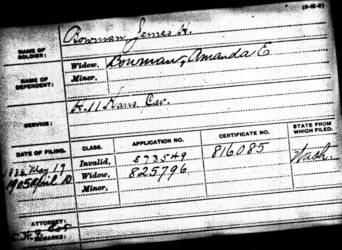 (3-15-6)
NAME OF SOLDIER: Bowman, James H.
NAME OF DEPENDENT: Widow, Bowman, Amanda E
Minor,
SERVICE: K 11 Kans. Cav.
DATE OF FILING. CLASS. APPLICATION NO. CERTIFICATE NO. STATE FROM WHICH FILED.
1886 May 17 Invalid, 573549 816085
1905 April Widow, 825796 Wash.
Minor,
ATTORNEY:
REMARKS: